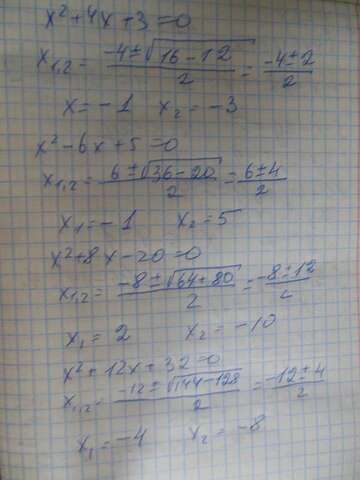 x² + 4x + 3 = 0
x₁,₂ = (-4 ± √(16 - 12))/2 = (-4 ± 2)/2
x = -1 x₂ = -3
x² - 6x + 5 = 0
x₁,₂ = (6 ± √(36 - 20))/2 = (6 ± 4)/2
x₁ = -1 x₂ = 5
x² + 8x - 20 = 0
x₁,₂ = (-8 ± √(64 + 80))/2 = (-8 ± 12)/2
x₁ = 2 x₂ = -10
x² + 12x + 32 = 0
x₁,₂ = (-12 ± √(144 - 128))/2 = (-12 ± 4)/2
x₁ = -4 x₂ = -8